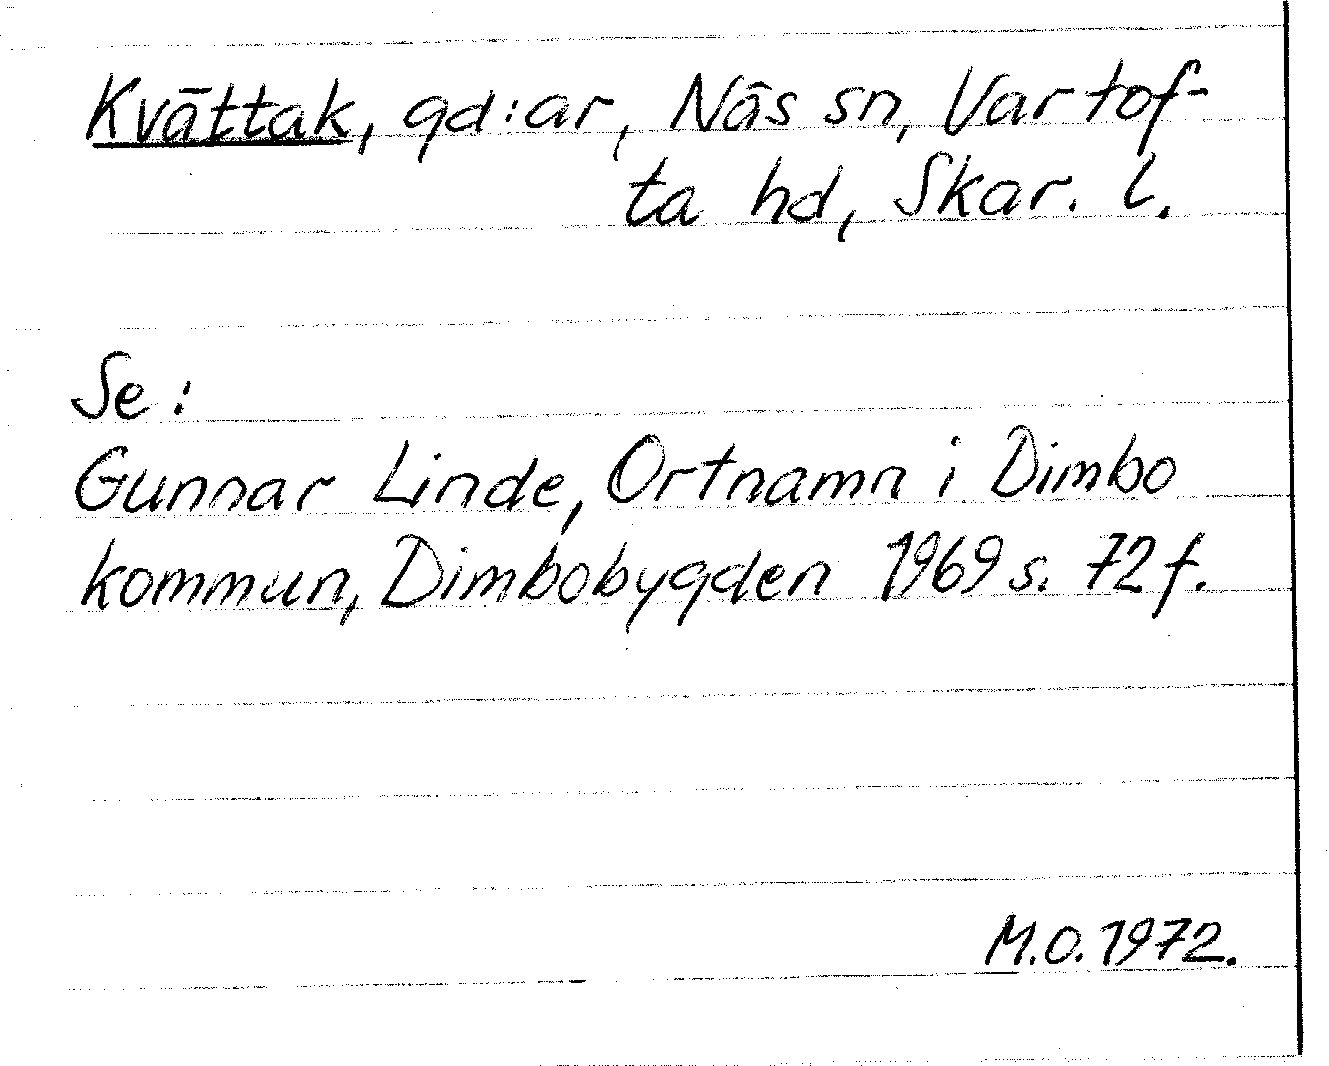 Kvättak, gd:ar, Näs sn, Vartof-
ta hd, Skar. l.
Se:
Gunnar Linde, Ortnamn i Dimbo
kommun, Dimbobygden 1969 s. 72 f.
M.O. 1972.